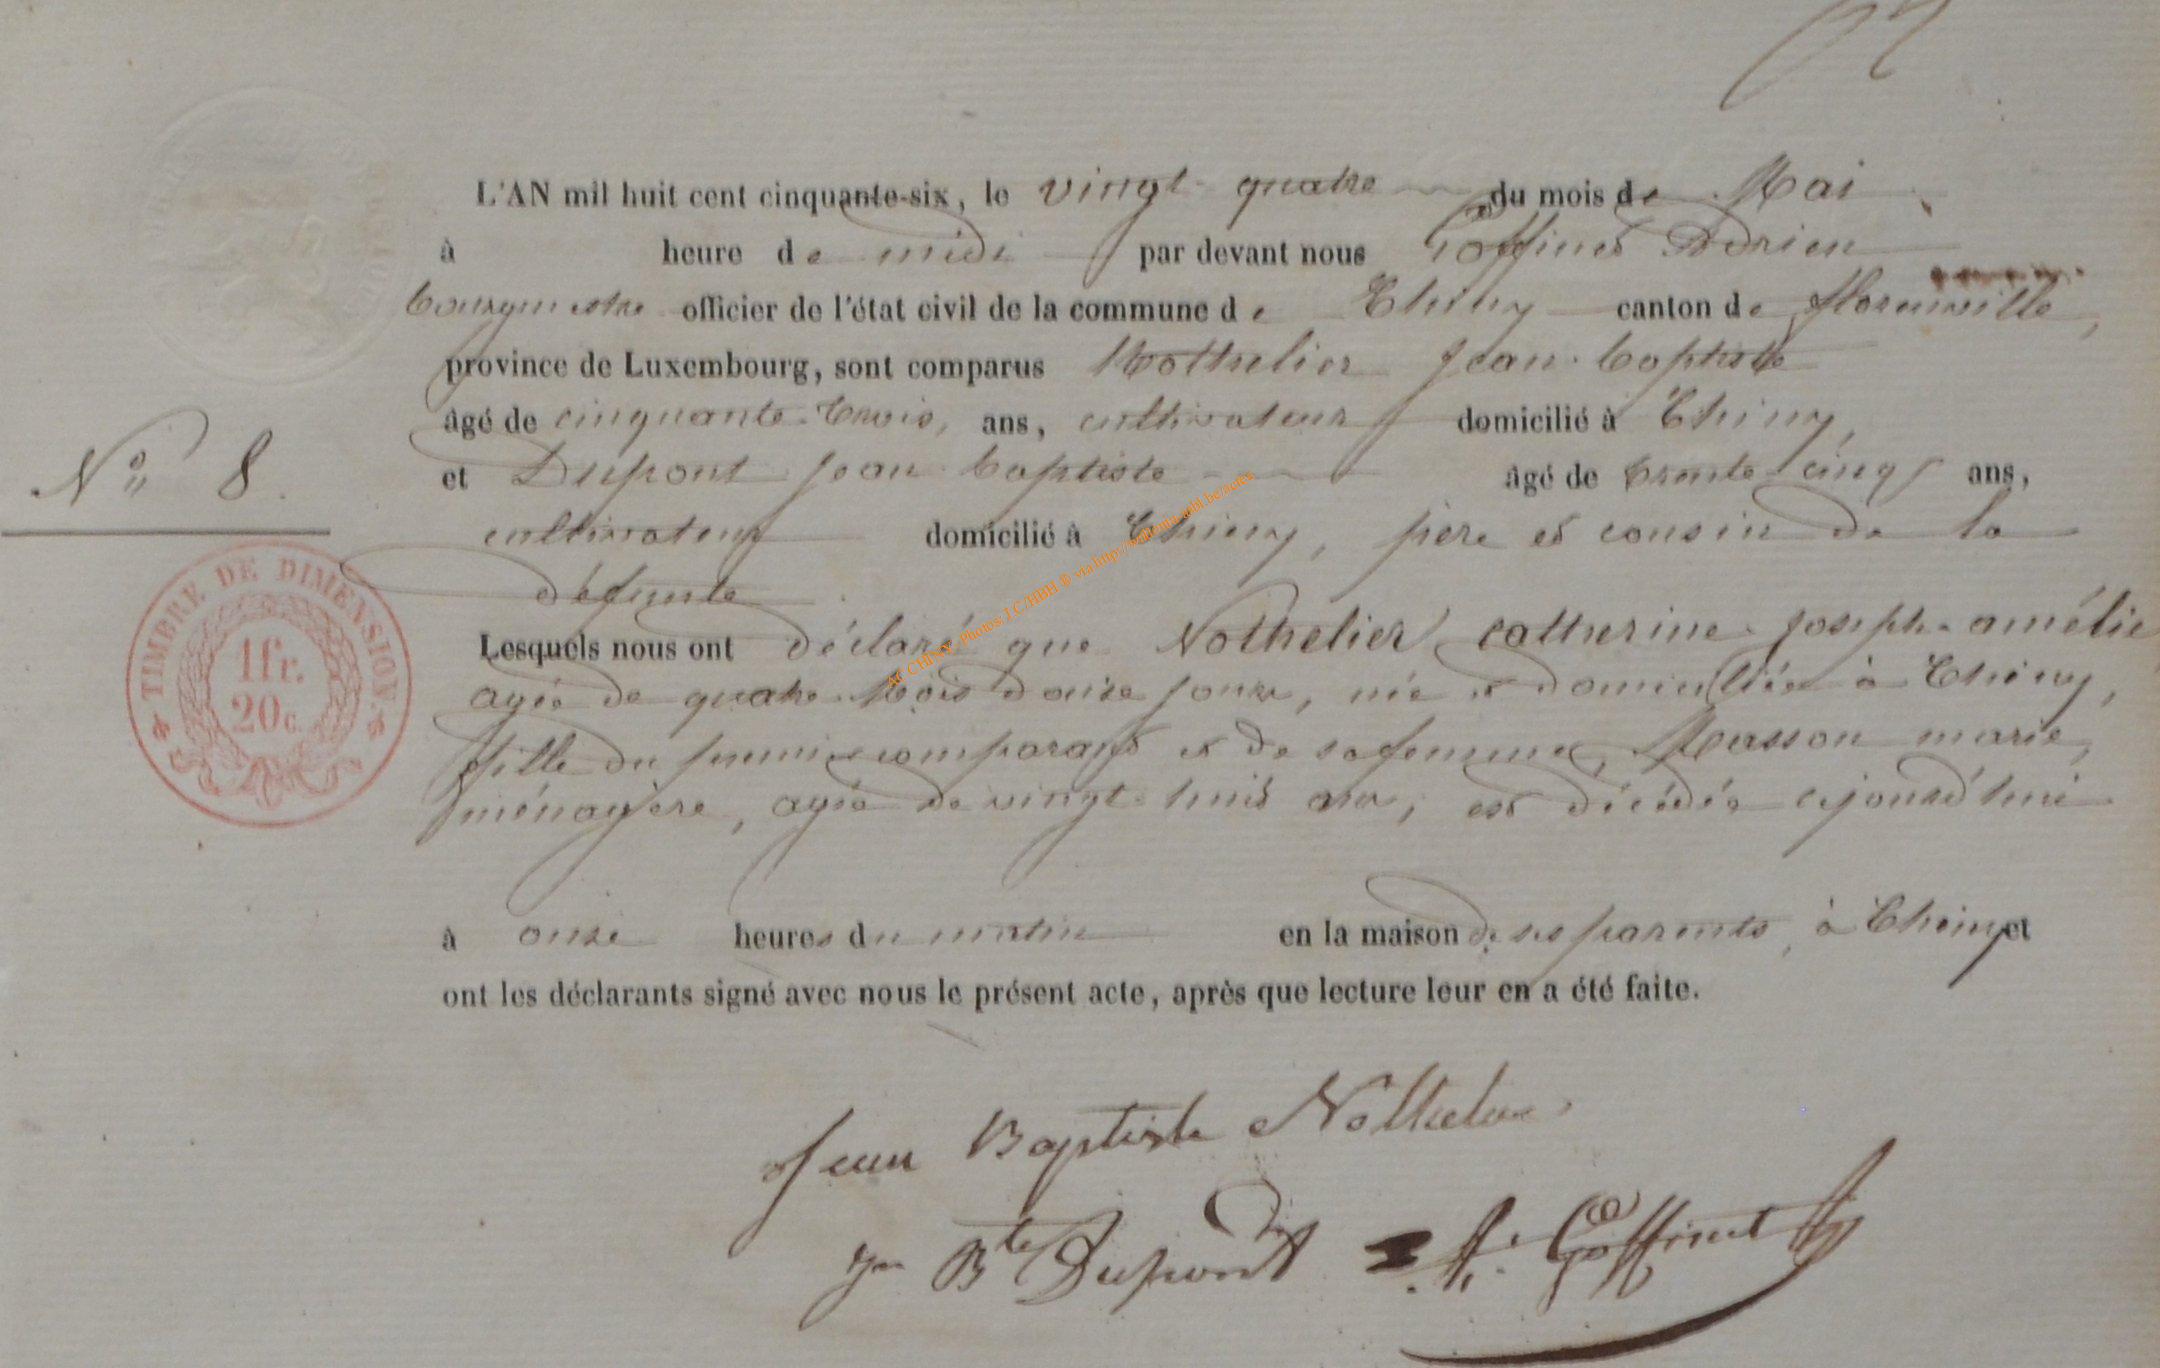 L'AN mil huit cent cinquante-six, le vingt quatre du mois de Mai
à heure de midi par devant nous Goffinet Adrien
bourgmestre officier de l'état civil de la commune de Chiny canton de florenville,
province de Luxembourg, sont comparus Nothelier Jean-baptiste
âgé de cinquante-trois, ans, cultivateur domicilié à Chiny,
et Dupont Jean-baptiste âgé de trente-cinq ans,
N° 8.
cultivateur domicilié à Chiny, père et cousin de la
défunte
TIMBRE DE DIMENSION.
1fr.
20c.
Lesquels nous ont déclaré que Nothelier, catherine-joseph-amélie,
agée de quatre Mois onze jours, née et domiciliée à Chiny,
fille du premier comparant et de sa femme, Masson marie,
ménagère, agée de vingt-huit ans, est décédée cejourd'hui
à onze heures du matin en la maison de ses parents, à Chiny et
ont les déclarants signé avec nous le présent acte, après que lecture leur en a été faite.
Jean Baptiste Nothelier
Jn Bte Dupont A. Goffinet